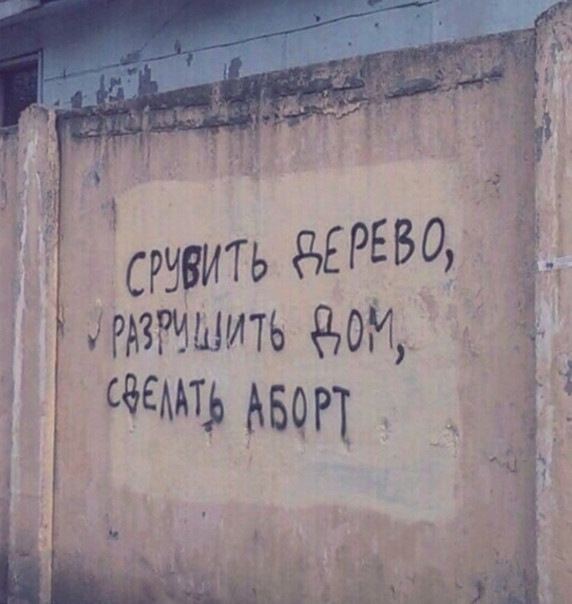 СРУВИТЬ ДЕРЕВО,
РАЗРУШИТЬ ДОМ,
СДЕЛАТЬ АБОРТ